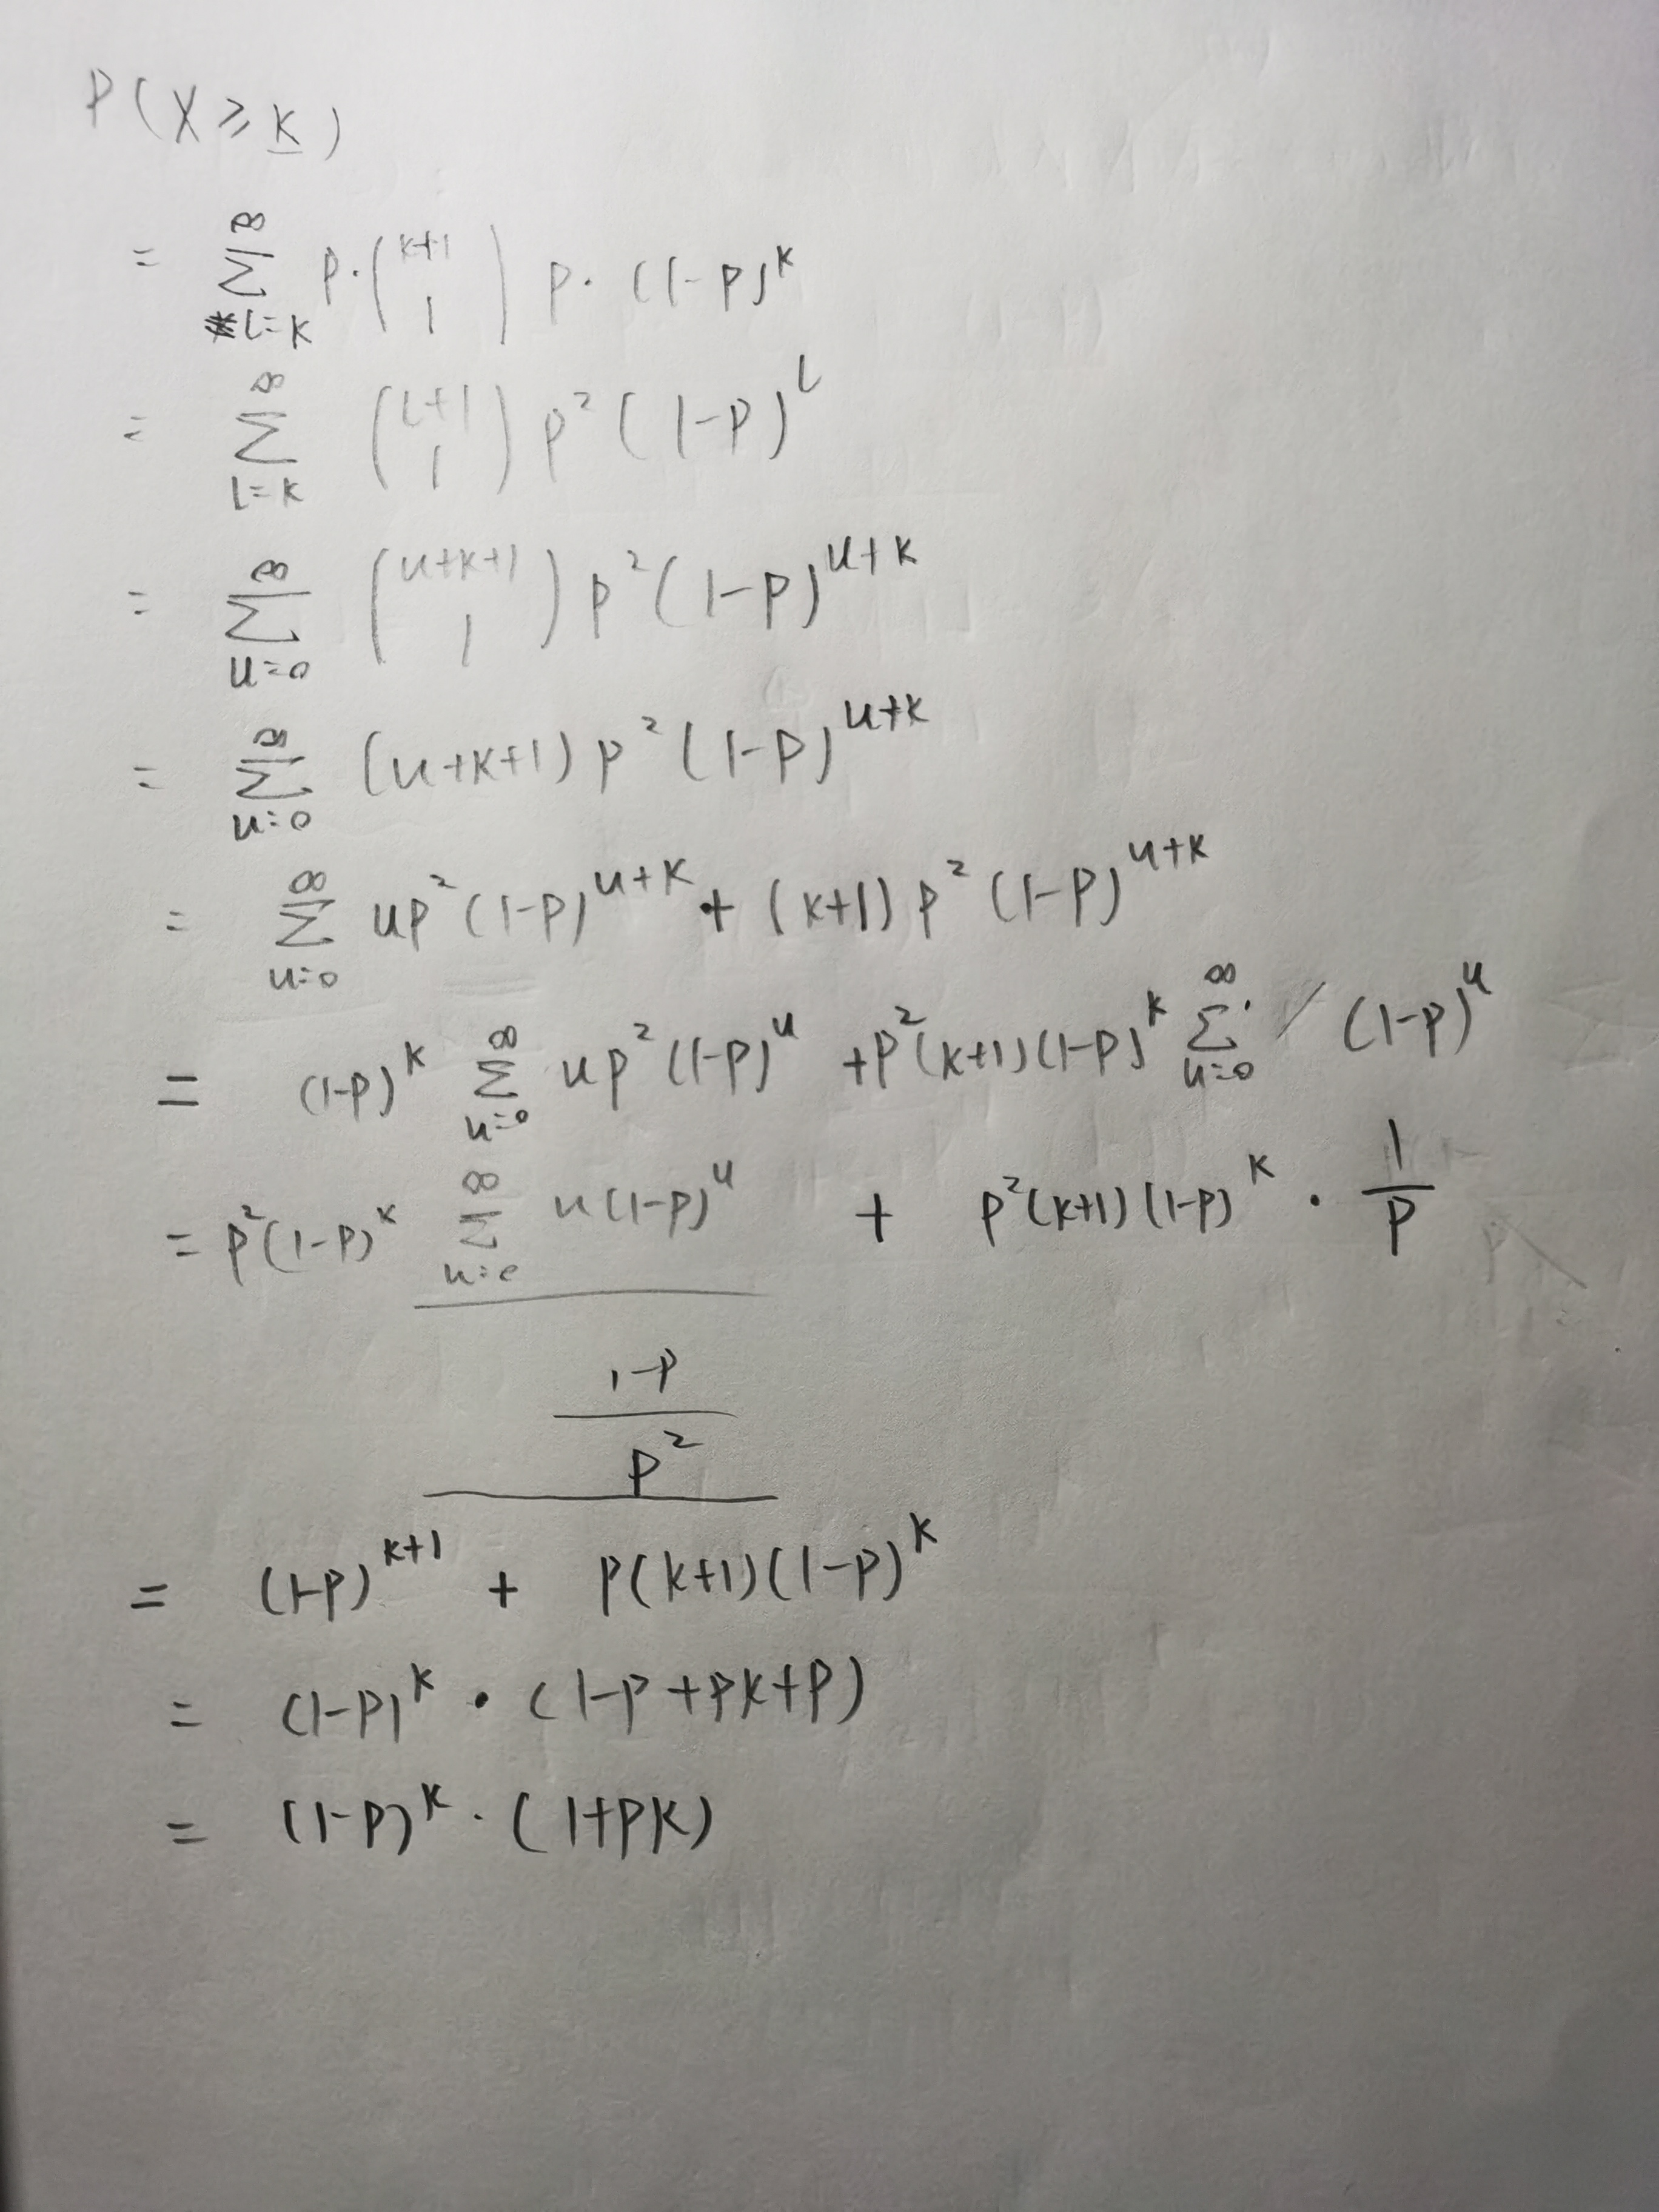 P(X ≥ k)
= ∑_{l=k}^{∞} p · \binom{k+1}{1} p · (1-p)^k
= ∑_{l=k}^{∞} \binom{l+1}{1} p^2 (1-p)^l
= ∑_{u=0}^{∞} \binom{u+k+1}{1} p^2 (1-p)^{u+k}
= ∑_{u=0}^{∞} (u+k+1) p^2 (1-p)^{u+k}
= ∑_{u=0}^{∞} up^2 (1-p)^{u+k} + (k+1) p^2 (1-p)^{u+k}
= (1-p)^k ∑_{u=0}^{∞} up^2 (1-p)^u + p^2 (k+1)(1-p)^k ∑_{u=0}^{∞} (1-p)^u
= p^2 (1-p)^k ∑_{u=0}^{∞} u(1-p)^u + p^2 (k+1)(1-p)^k · \frac{1}{p}
\frac{1-p}{p^2}
= (1-p)^{k+1} + p(k+1)(1-p)^k
= (1-p)^k · (1-p+pk+p)
= (1-p)^k · (1+pk)